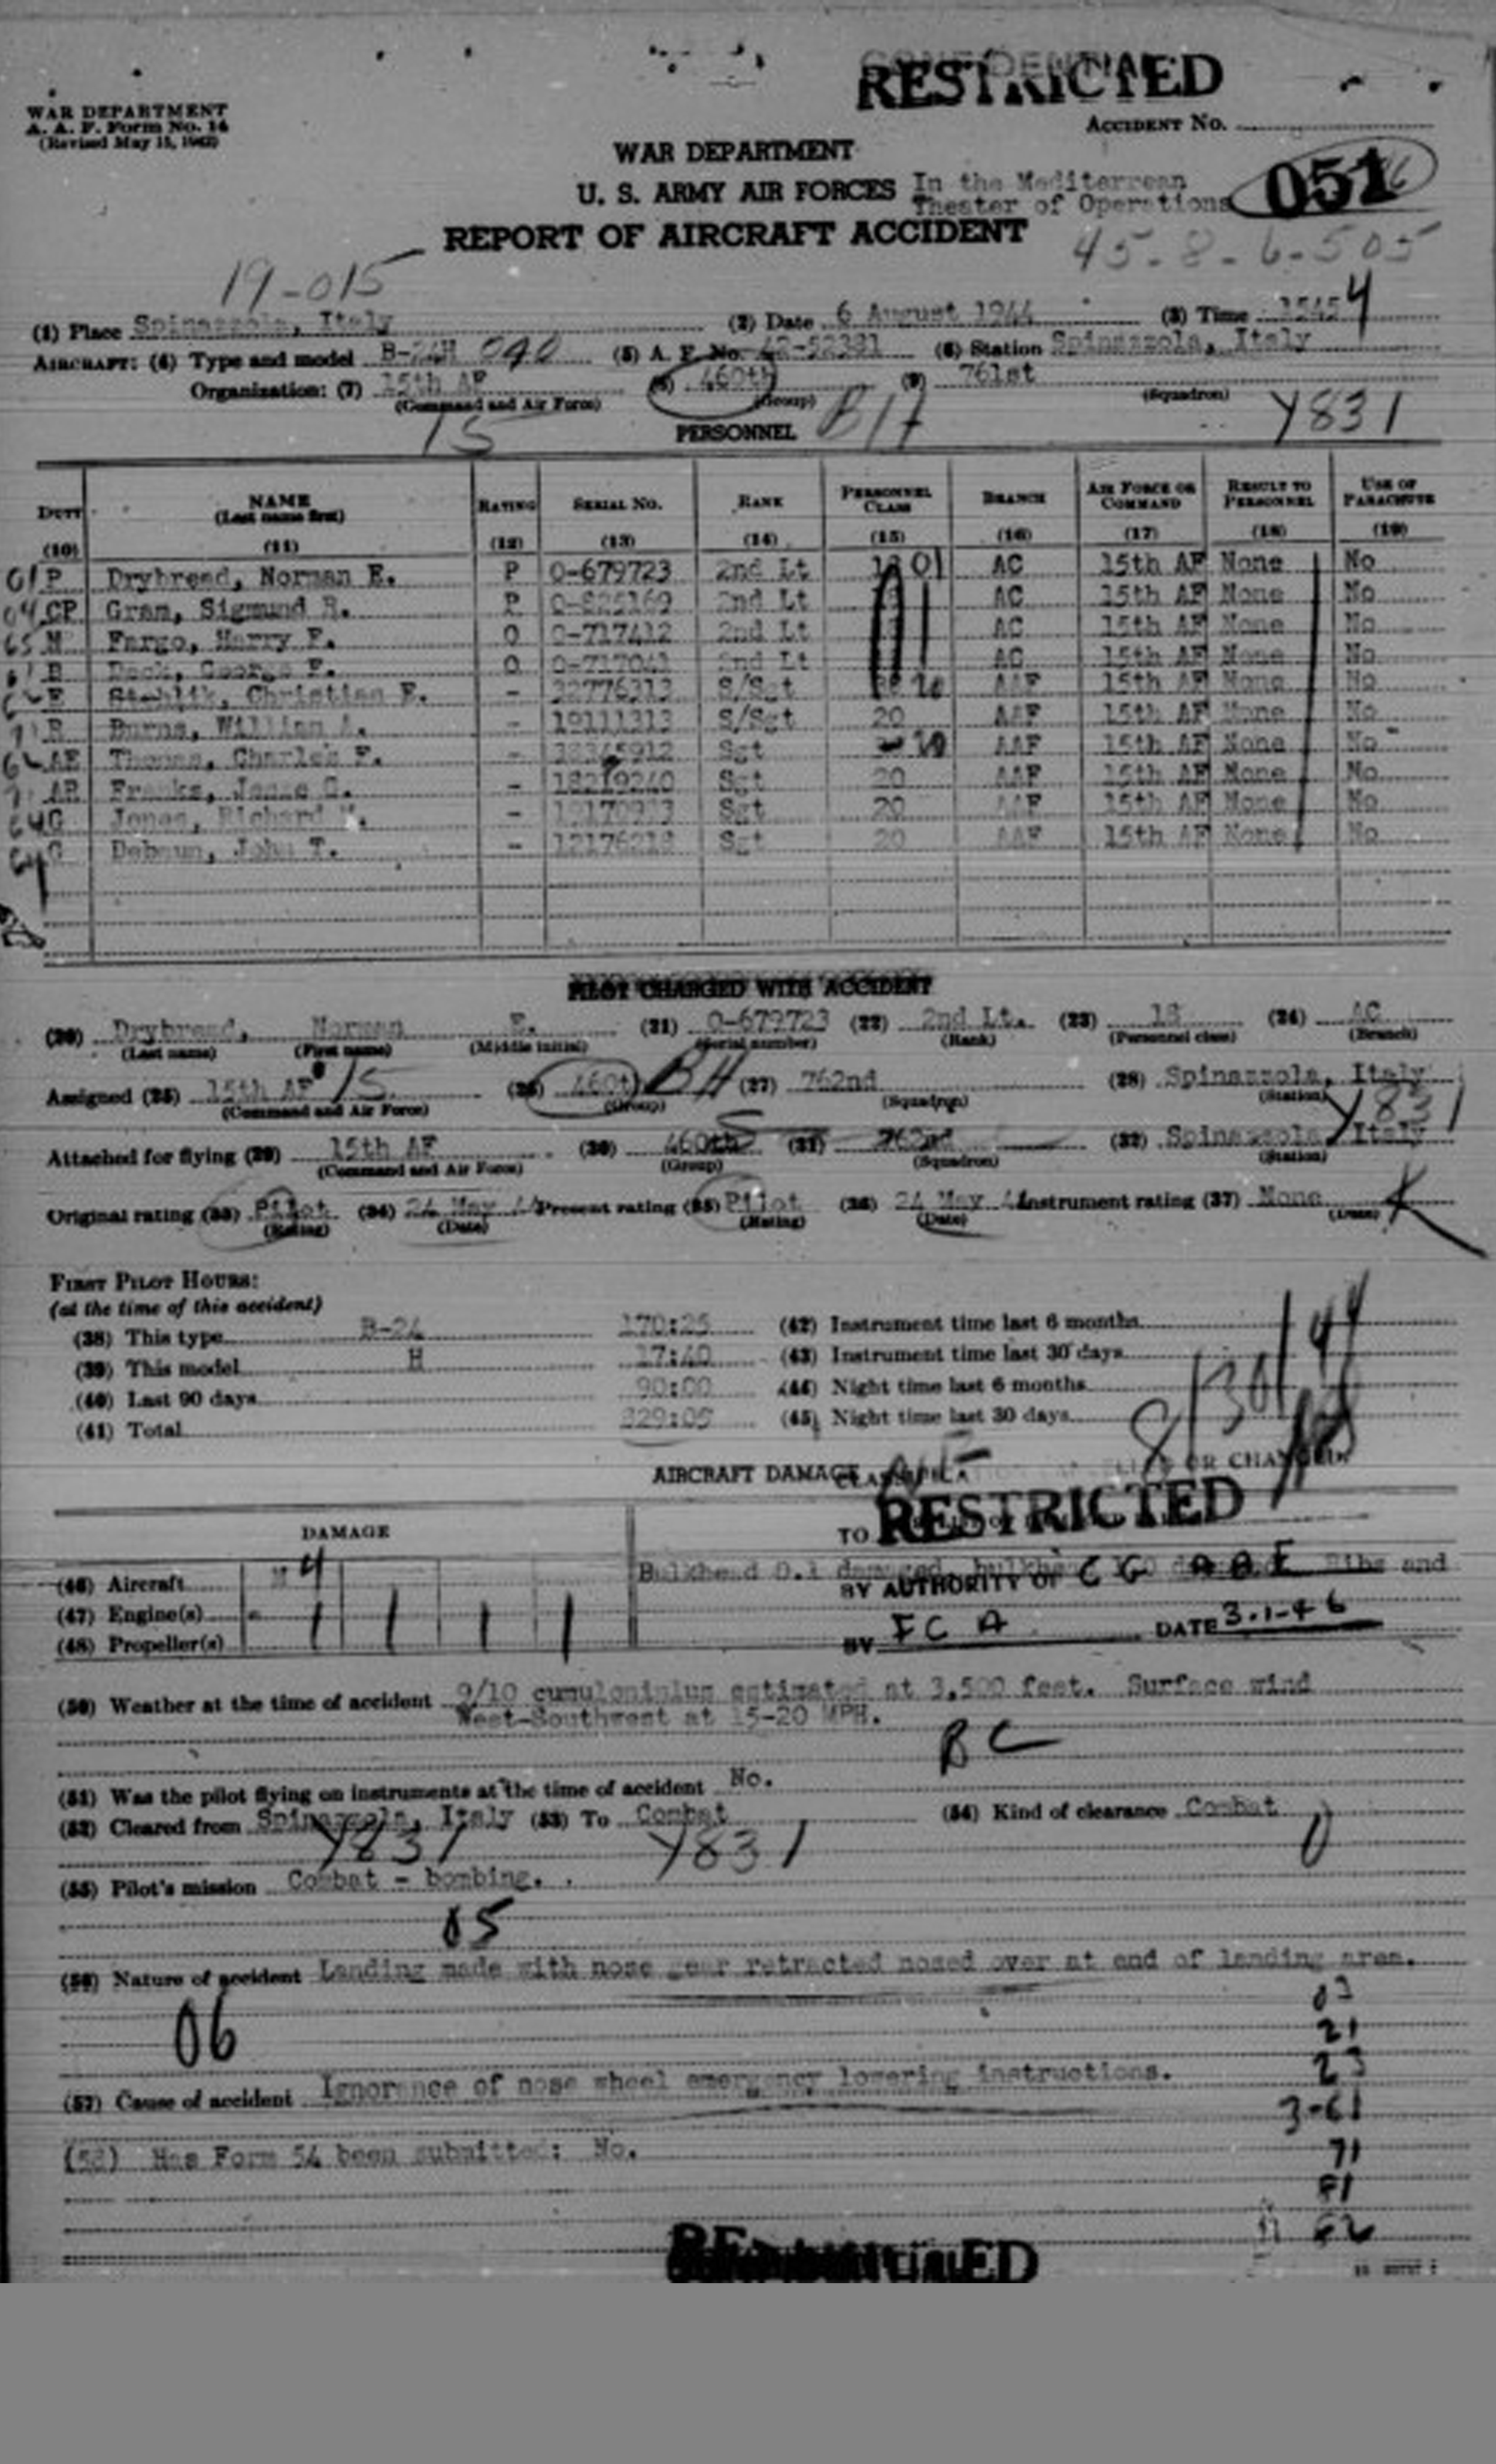 RESTRICTED
WAR DEPARTMENT
A. A. F. Form No. 14
(Revised May 15, 1942)
ACCIDENT No.
WAR DEPARTMENT
U. S. ARMY AIR FORCES In the Mediterrean
Theater of Operations
051
REPORT OF AIRCRAFT ACCIDENT
45-8-6-505
19-015
(1) Place Spinazzola, Italy (2) Date 6 August 1944 (3) Time 1545 4
AIRCRAFT: (4) Type and model B-24H 090 (5) A. F. No. 42-52381 (6) Station Spinazzola, Italy
Organization: (7) 15th AF (8) 460th (9) 761st
(Command and Air Force) (Group) (Squadron)
15 PERSONNEL Y831
DUTY NAME (Last name first) RATING SERIAL NO. RANK PERSONNEL CLASS BRANCH AIR FORCE OR COMMAND RESULT TO PERSONNEL USE OF PARACHUTE
(10) (11) (12) (13) (14) (15) (16) (17) (18) (19)
01 P Drybread, Norman E. P O-679723 2nd Lt 01 AC 15th AF None No
04 CP Gram, Sigmund R. P 2nd Lt AC 15th AF None No
65 N Fargo, Harry F. O O-717412 2nd Lt AC 15th AF None No
B George F. O 2nd Lt AC 15th AF None No
E Christian E. - 32776313 S/Sgt AAF 15th AF None No
R Burns, William A. - 19111313 S/Sgt 20 AAF 15th AF None No
AE Thomas, F. - Sgt AAF 15th AF None No
AR Franks, G. - 18219240 Sgt 20 AAF 15th AF None No
64 G Jones, Richard - Sgt 20 AAF 15th AF None No
G Debaun, John T. - 12176218 Sgt 20 AAF 15th AF None No
PILOT CHARGED WITH ACCIDENT
(20) Drybread, Norman E. (21) O-679723 (22) 2nd Lt. (23) 18 (24) AC
(Last name) (First name) (Middle initial) (Serial number) (Rank) (Personnel class) (Branch)
Assigned (25) 15th AF 15 (26) 460th BH (27) 762nd (28) Spinazzola, Italy
(Command and Air Force) (Group) (Squadron) (Station)
Y831
Attached for flying (29) 15th AF (30) 460th (31) 762nd (32) Spinazzola, Italy
(Command and Air Force) (Group) (Squadron) (Station)
Original rating (33) Pilot (34) 24 May Present rating (35) Pilot (36) 24 May Instrument rating (37) None
(Rating) (Date) (Rating) (Date) (Date)
FIRST PILOT HOURS:
(at the time of this accident)
(38) This type B-24 170:25 (42) Instrument time last 6 months
(39) This model H 17:40 (43) Instrument time last 30 days
(40) Last 90 days 90:00 (44) Night time last 6 months
(41) Total 329:05 (45) Night time last 30 days
8/30/44
AIRCRAFT DAMAGE
TO RESTRICTED
DAMAGE
(46) Aircraft 4 Bulkhead 0.1 damaged, Ribs and
BY AUTHORITY OF C G AAF
(47) Engine(s)
(48) Propeller(s)
BY F C A DATE 3-1-46
(50) Weather at the time of accident 9/10 cumulonimbus estimated at 3,500 feet. Surface wind
West-Southwest at 15-20 MPH.
BC
(51) Was the pilot flying on instruments at the time of accident No.
(52) Cleared from Spinazzola, Italy (53) To Combat (54) Kind of clearance Combat
Y831 Y831
(55) Pilot's mission Combat - bombing.
05
(56) Nature of accident Landing made with nose gear retracted nosed over at end of landing area.
03
06
21
23
(57) Cause of accident Ignorance of nose wheel emergency lowering instructions.
3-61
(58) Has Form 54 been submitted: No.
71